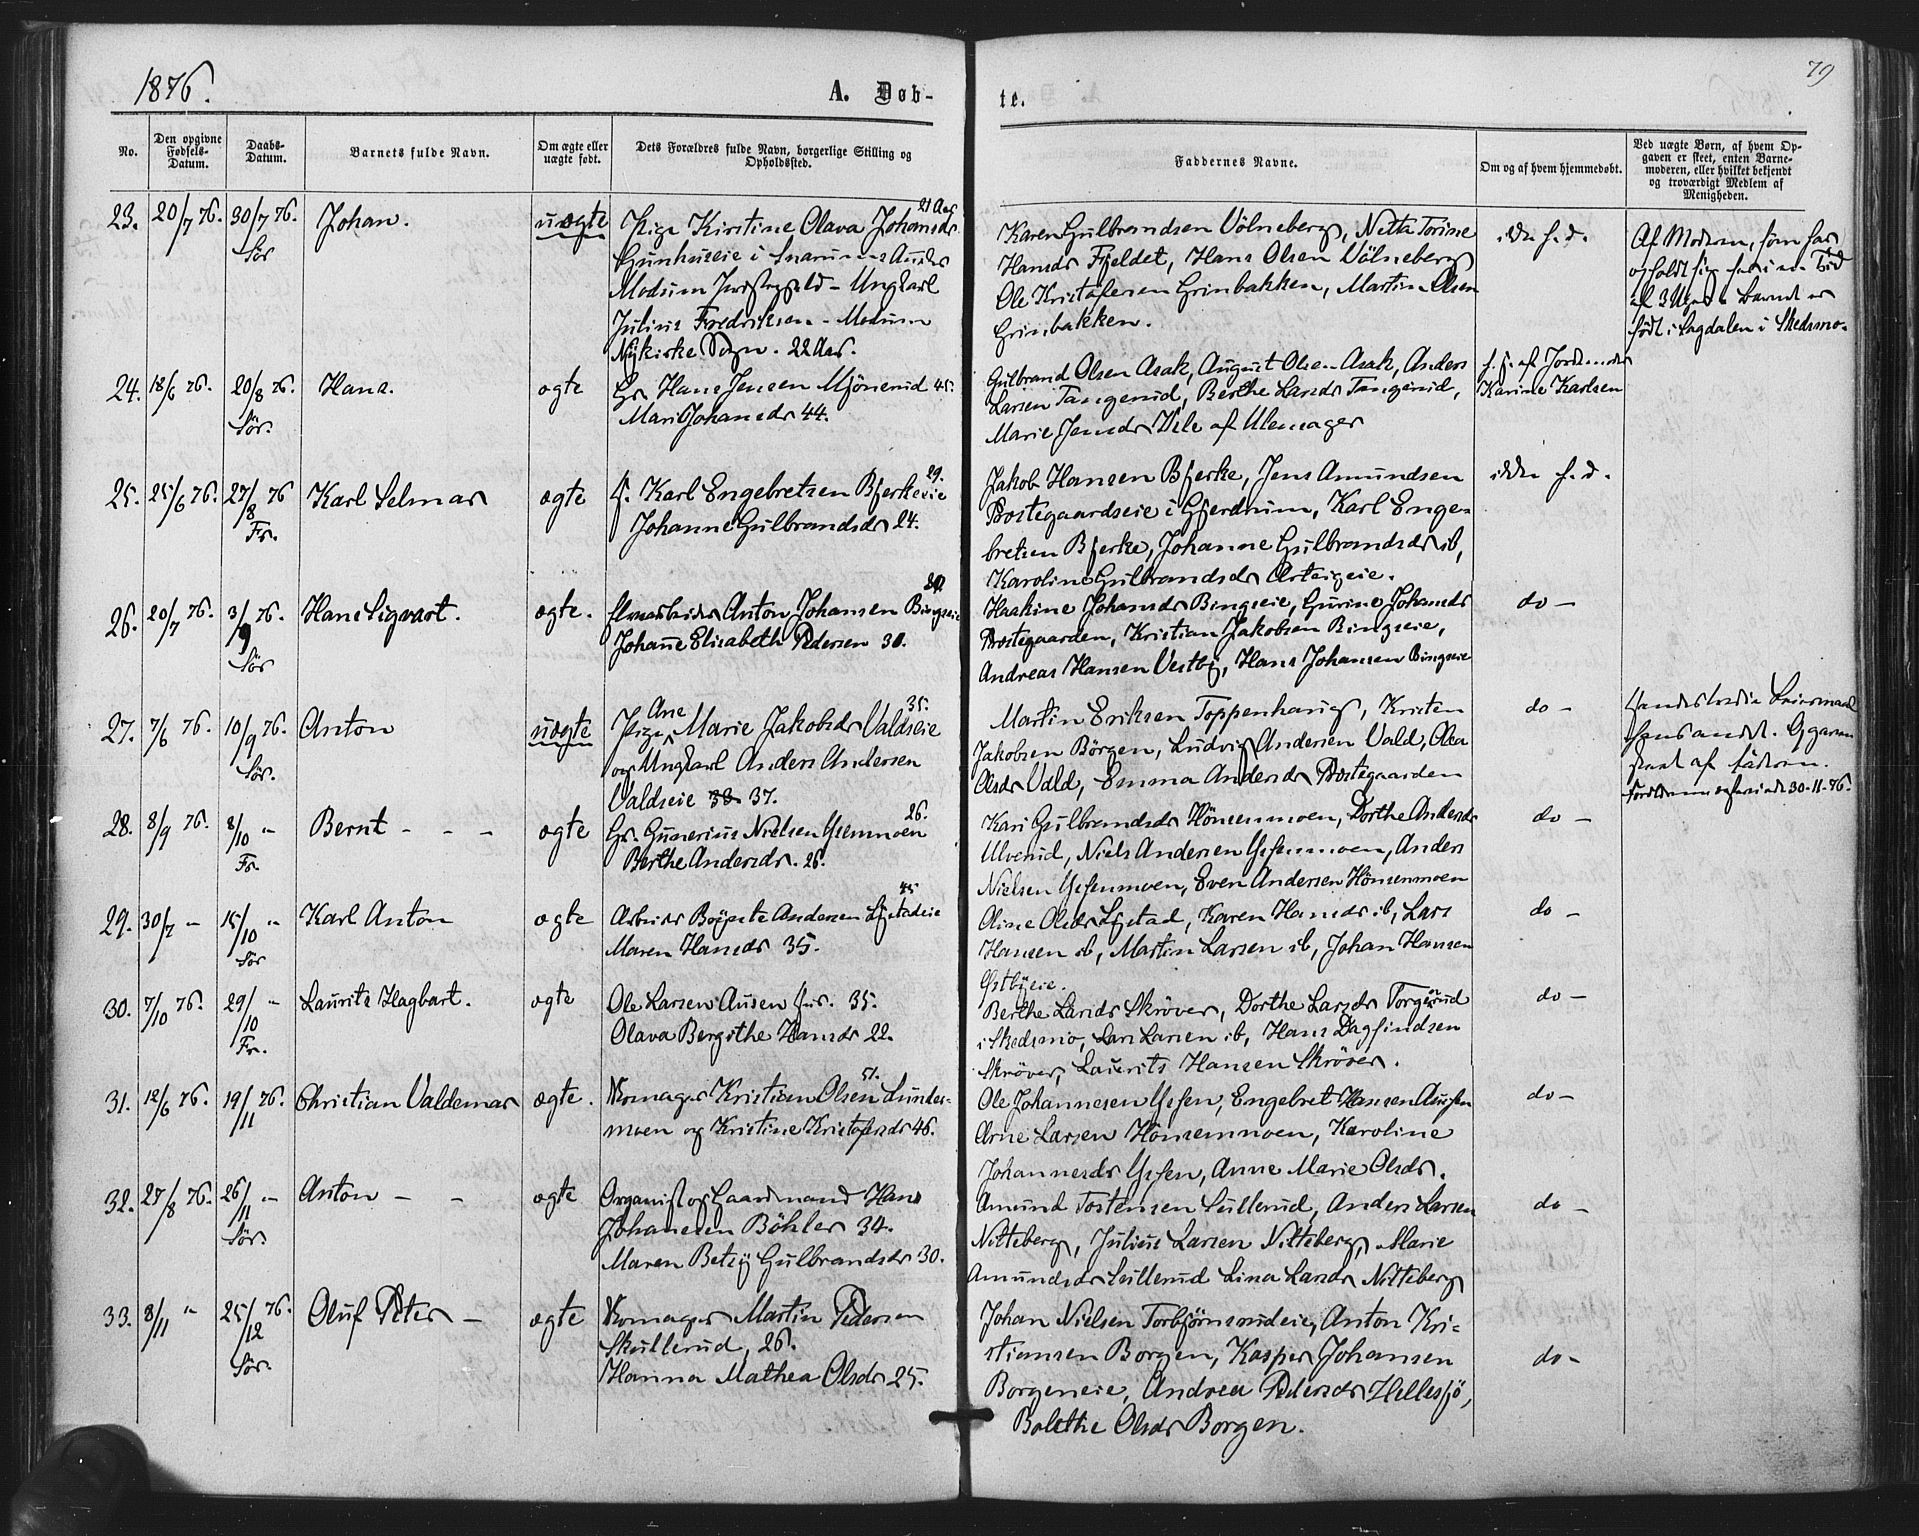 1876.
A. Døb-
te.
79
No.
Den opgivne
Fødsels-
Datum.
Daabs-
Datum.
Barnets fulde Navn.
Om ægte eller
uægte født.
Dets Forældres fulde Navn, borgerlige Stilling og
Opholdssted.
Faddernes Navne.
Om og af hvem hjemmedøbt.
Ved uægte Børn, af hvem Op-
gaven er skeet, enten Barne-
moderen, eller hvilket bekjendt
og troværdigt Medlem af
Menigheden.
23. 20/7 76. 30/7 76. Johan. uægte
Sør
21 Aar
Pige Kirstine Olava Johansdr
Gunhuseie i Snarums Andex
Modum Præstegjeld - Ungkarl
Julius Fredriksen - Modum
Nykirke Sogn. 22 Aar.
Karen Gulbrandsen Völneberg, Netta Torine
Hansdr Fjeldet, Hans Olsen Völneberg
Ole Kristofersen Grinbakken, Martin Olsen
Grinbakken.
ikke h. d.
Af Moderen, som har
opholdt sig her i en Tid
af 3 Uger. Barnet er
født i Sagdalen i Skedsmo.
24. 18/6 76. 20/8 76. Hans. ægte
Sør.
Gr. Hans Jensen Mjönerud 45.
Mari Johansdr 44.
Gulbrand Olsen Asak, August Olsen Asak, Anders
Larsen Tangerud, Berthe Larsdr Tangerud,
Marie Jensdr Dele af Ulensager
h. d. af Jordemoder
Karine Karlsen
25. 25/6 76. 27/8 76 Karl Selmar ægte
Fr.
29.
F. Karl Engebretsen Bjerkeeie
Johanne Gulbrandsdr 24.
Jakob Hansen Bjerke, Jens Amundsen
Prestegaardseie i Gjerdrum, Karl Enge-
bretsen Bjerke, Johanne Gulbrandsdr ib,
Karoline Gulbrandsdr Asteigeie.
ikke h. d.
26. 20/7 76. 3/9 76. Hans Sigvart. ægte.
Sør
Anton Johansen Bingseie
Johanne Elisabeth Pedersen 30.
Haakine Johansdr Bingseie, Gurine Johansdr
Prestegaarden, Kristian Jakobsen Bingseie,
Andreas Hansen Vestby, Hans Johansen Bingseie
do -
27. 7/6 76. 10/9 76. Anton uægte
Sør.
35.
Ane
Pige Marie Jakobsdr Valdseie
og Ungkarl Anders Andersen
Valdseie 38 37.
Martin Eriksen Toppenhaug, Kristen
Jakobsen Börgen, Ludvig Andersen Vald, Olea
Olsdr Vald, Emma Andersdr Prestegaarden
do -
Leiermaal
af Faderen.
30-11-76.
28. 8/9 76. 8/10 " Bernt - - - ægte
Fr.
26.
Gr. Gunerius Nielsen Ysenmoen
Berthe Andersdr. 26.
Kari Gulbrandsdr Hönsenmoen, Dorthe Andersdr
Ulverud, Niels Andersen Ysenmoen, Anders
Nielsen Ysenmoen, Even Andersen Hönsenmoen
do -
29. 30/7 - 15/10 " Karl Anton ægte
Sør
45
Arbeider Andersen Lystadeie
Maren Hansdr 35.
Oline Olsdr Lystad, Karen Hansdr ib, Lars
Hansen ib, Martin Larsen ib, Johan Hansen
Østbyeie.
do -
30. 7/10 76. 29/10 " Laurits Hagbart. ægte
Fr.
Ole Larsen Ausen 35.
Olava Bergithe Hansdr 22.
Berthe Larsdr Skröver, Dorthe Larsdr Torgerud
i Skedsmo, Lars Larsen ib, Hans Dagfindsen
Skröver, Laurits Hansen Skröver.
do -
31. 12/6 76. 19/11 76. Christian Valdemar ægte.
51.
Skomager Kristian Olsen Lunder-
moen og Kristine Kristofersdr 46.
Ole Johannesen Ysen, Engebret Hansen Ausen
Arne Larsen Hönsenmoen, Karoline
Johannesdr Ysen, Anne Marie Olsdr.
do -
32. 27/8 76. 26/11 - Anton - - ægte
Sør.
Organist og Gaardmand Hans
Johannesen Böhler 34.
Maren Betsy Gulbrandsdr 30.
Amund Tostensen Sullerud, Anders Larsen
Nitteberg, Julius Larsen Nitteberg, Marie
Amundsdr Sullerud Lina Larsdr Nitteberg
do -
33. 8/11 " 25/12 76. Oluf Peter - ægte
Sør.
Skomager Martin Pedersen
Skullerud, 26.
Hanna Mathea Olsdr 25.
Johan Nielsen Torbjörnsrudeie, Anton Kri-
stiansen Borgen, Kasper Johansen
Borgeneie, Andrea Pedersdr Hellesjö,
Bolethe Olsdr Borgen.
do -